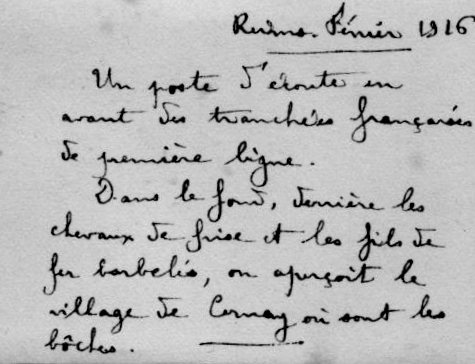 Reims. Février 1916
Un poste d'écoute en
avant des tranchées françaises
de première ligne.
Dans le fond, derrière les
chevaux de frise et les fils de
fer barbelés, on aperçoit le
village de Cernay où sont les
bôches.